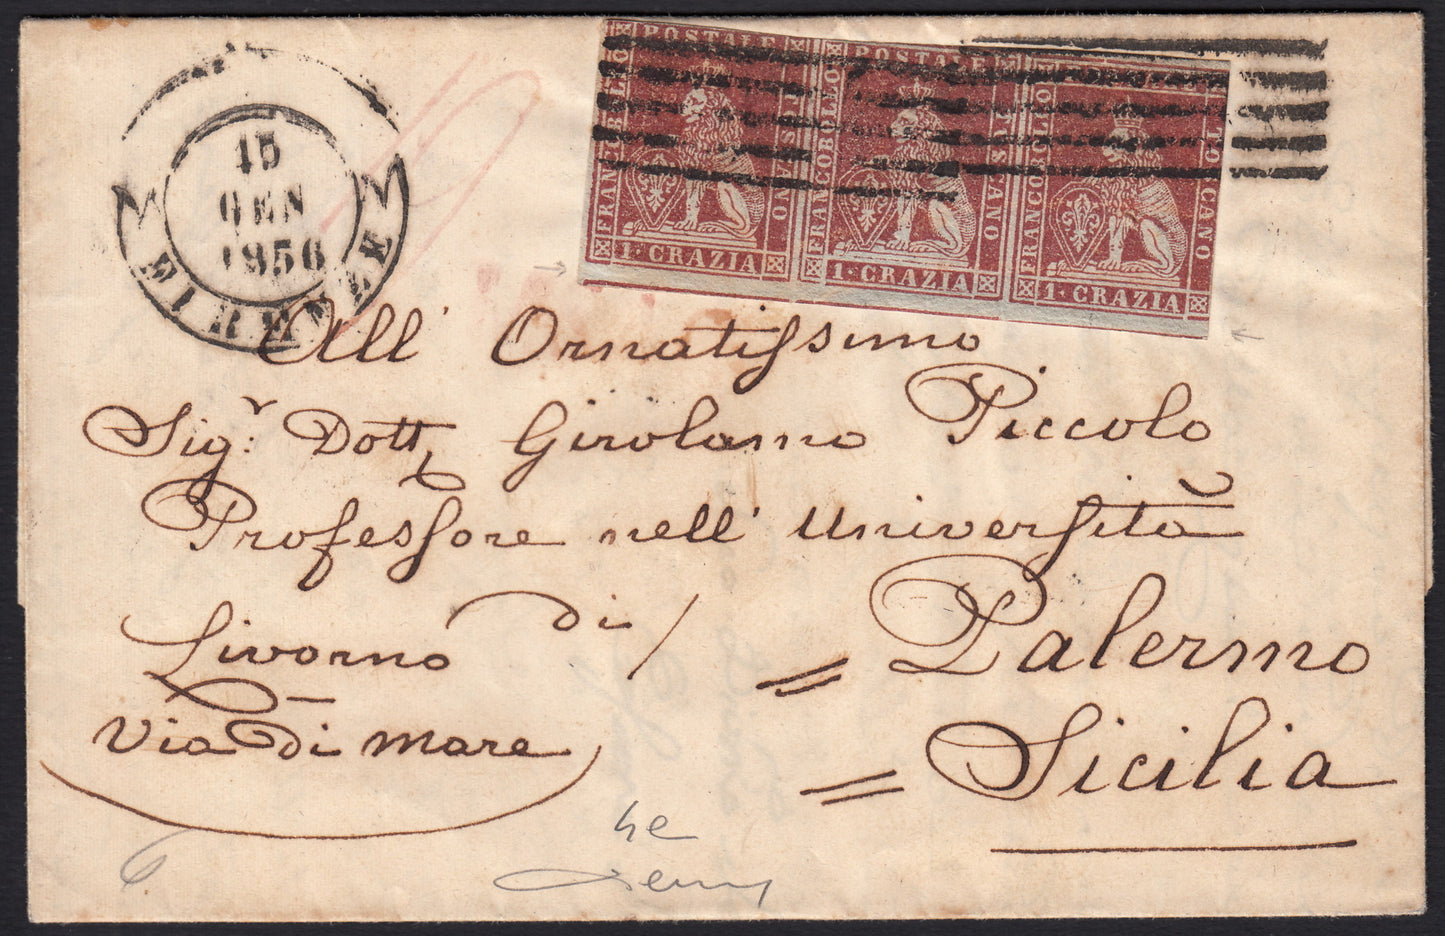 15
GEN
1856
FIRENZE
FRANCOBOLLO POSTALE TOSCANO
1 CRAZIA
FRANCOBOLLO POSTALE TOSCANO
1 CRAZIA
FRANCOBOLLO TOSCANO
1 CRAZIA
All' Ornatissimo
Sigr. Dott, Girolamo Piccolo
Professore nell' Università
di Palermo
Sicilia
Livorno
Via di mare